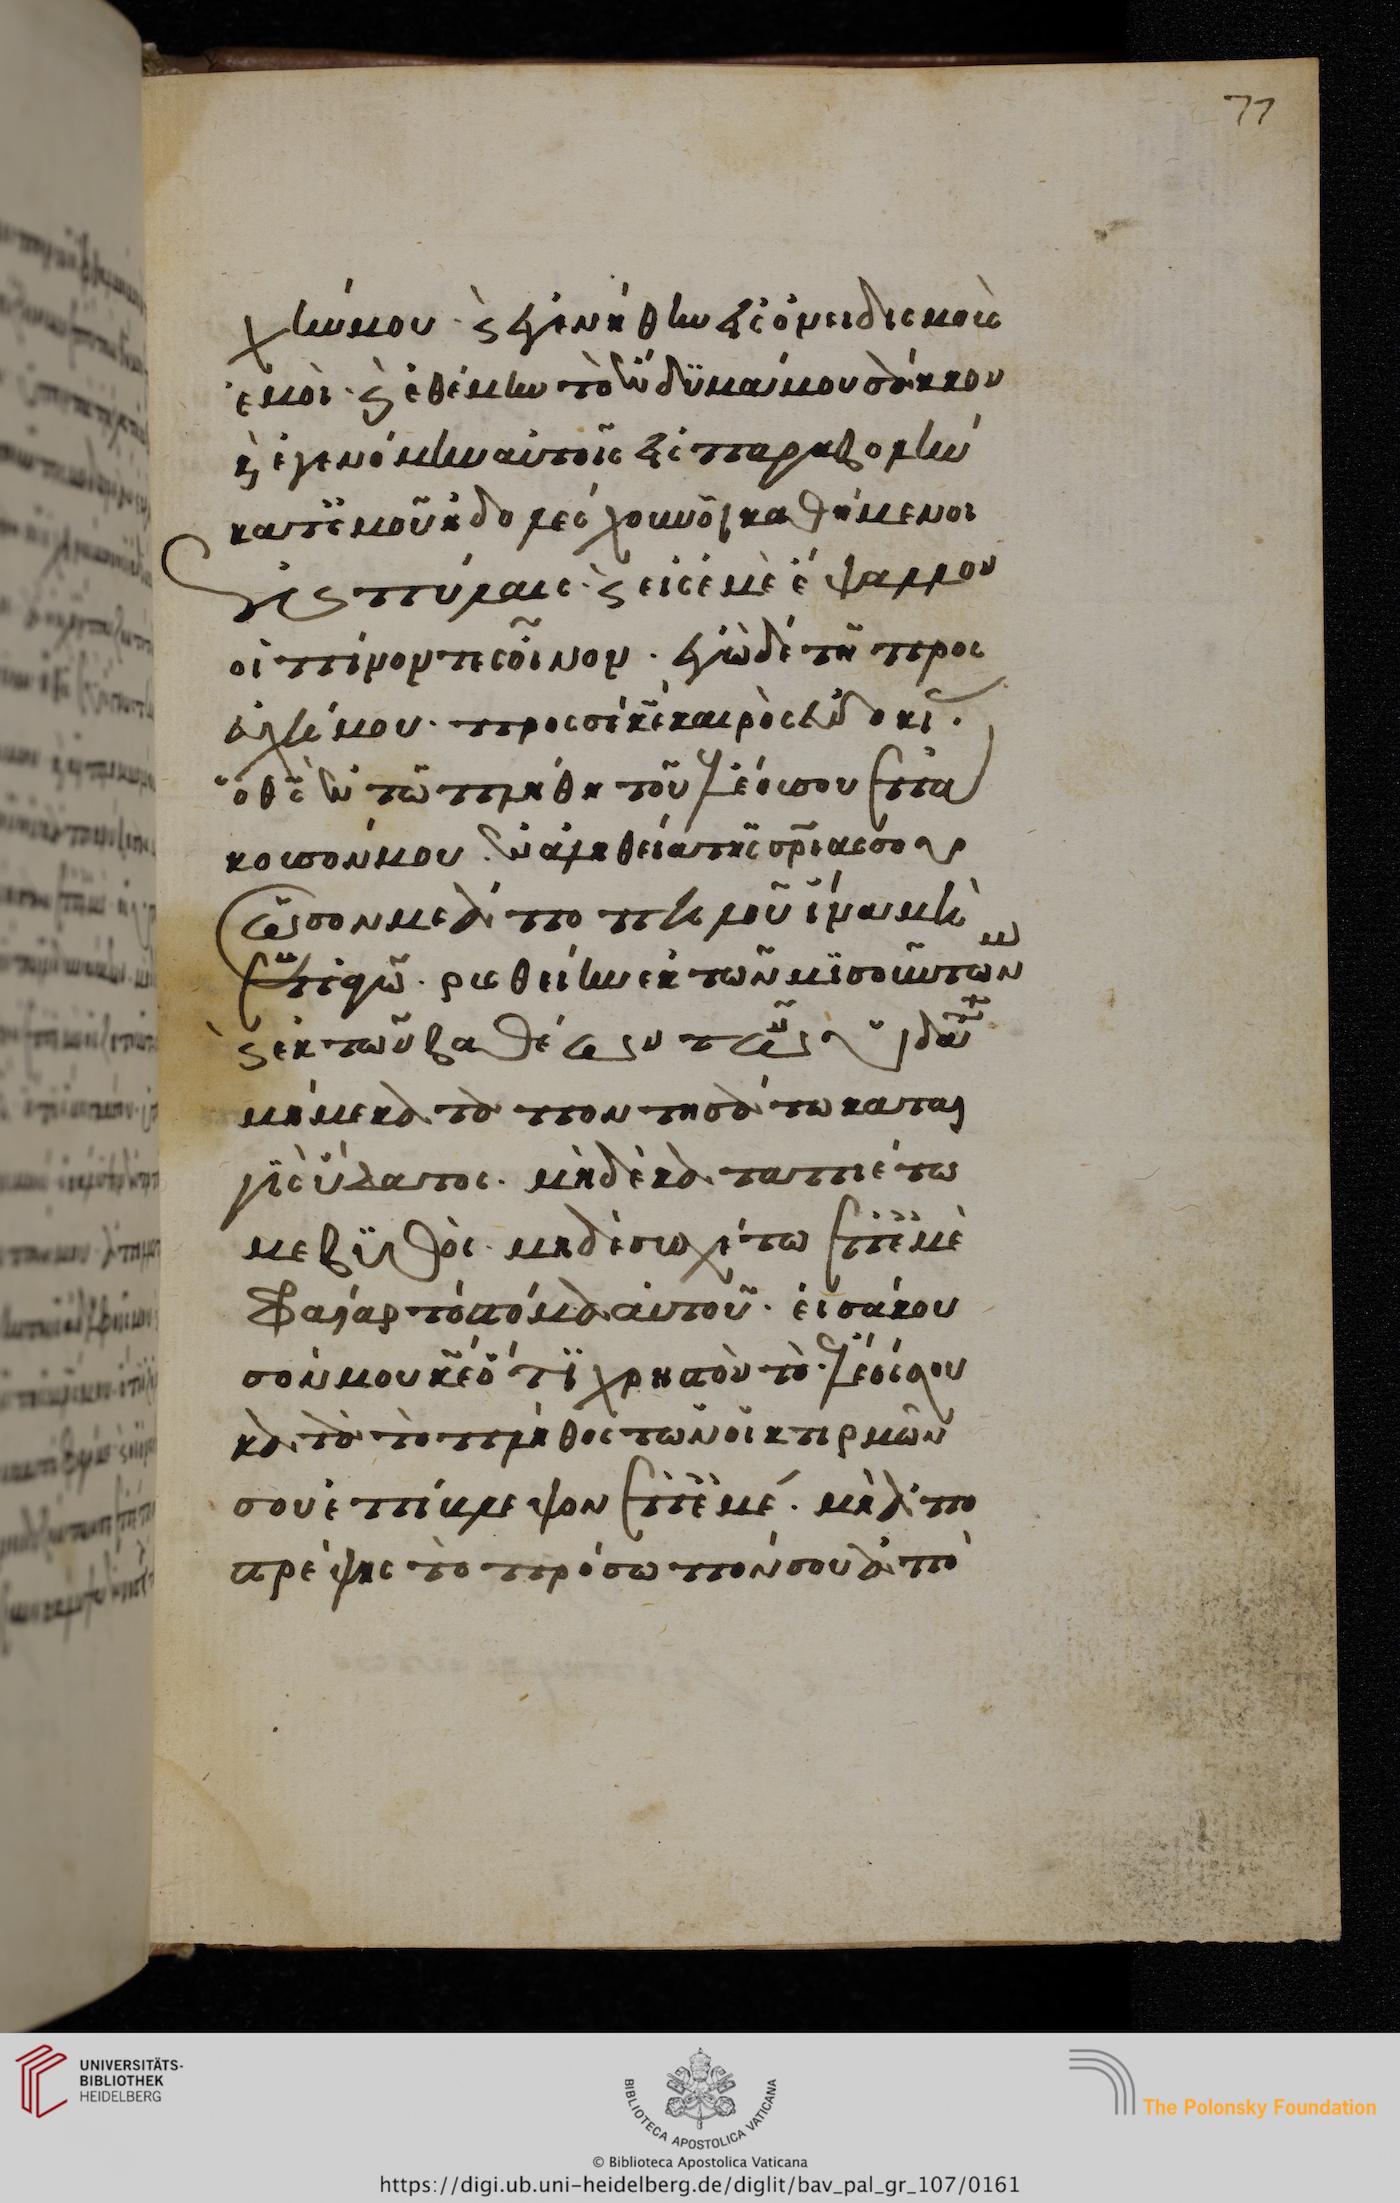 71
χήν μου· κ(αὶ) ἐγενήθην εἰς ὀνειδισμοὺς
ἐμοί· κ(αὶ) ἐθέμην τὸ ἔνδυμά μου σάκκον
κ(αὶ) ἐγενόμην αὐτοῖς εἰς παραβολήν
κατ' ἐμοῦ ἠδολέσχουν οἱ καθήμενοι
ἐν πύλαις· κ(αὶ) εἰς ἐμὲ ἔψαλλον
οἱ πίνοντες οἶνον. ἐγὼ δὲ τῇ προς
ευχῇ μου· προς σέ κ(ύρι)ε καιρὸς εὐδοκί(ας).
ὁ θ(εὸ)ς ἐν τῷ πλήθει τοῦ ἐλέους σου ἐπά
κουσόν μου. ἐν ἀληθείᾳ τῆς σ(ωτη)ρίας σου
σῶσον με ἀπὸ πηλοῦ ἵνα μὴ
ἐμπαγῶ. ῥυσθείην ἐκ τῶν μισούντων
κ(αὶ) ἐκ τῶν βαθέων τῶν ὑδάτων
μή με καταποντησάτω καταιγ
γὶς ὕδατος. μηδὲ καταπιέτω
με βυθός. μηδὲ συσχέτω ἐπ' ἐμὲ
φρέαρ τὸ στόμα αὐτοῦ. εἰσάκου
σόν μου κ(ύρι)ε ὅτι χρηστὸν τὸ ἔλεός σου
κατὰ τὸ πλῆθος τῶν οἰκτιρμῶν
σου ἐπίβλεψον ἐπ' ἐμέ. μὴ ἀπο
στρέψῃς τὸ πρόσωπόν σου ἀπὸ
UNIVERSITÄTS-
BIBLIOTHEK
HEIDELBERG
BIBLIOTECA APOSTOLICA VATICANA
The Polonsky Foundation
© Biblioteca Apostolica Vaticana
https://digi.ub.uni-heidelberg.de/diglit/bav_pal_gr_107/0161